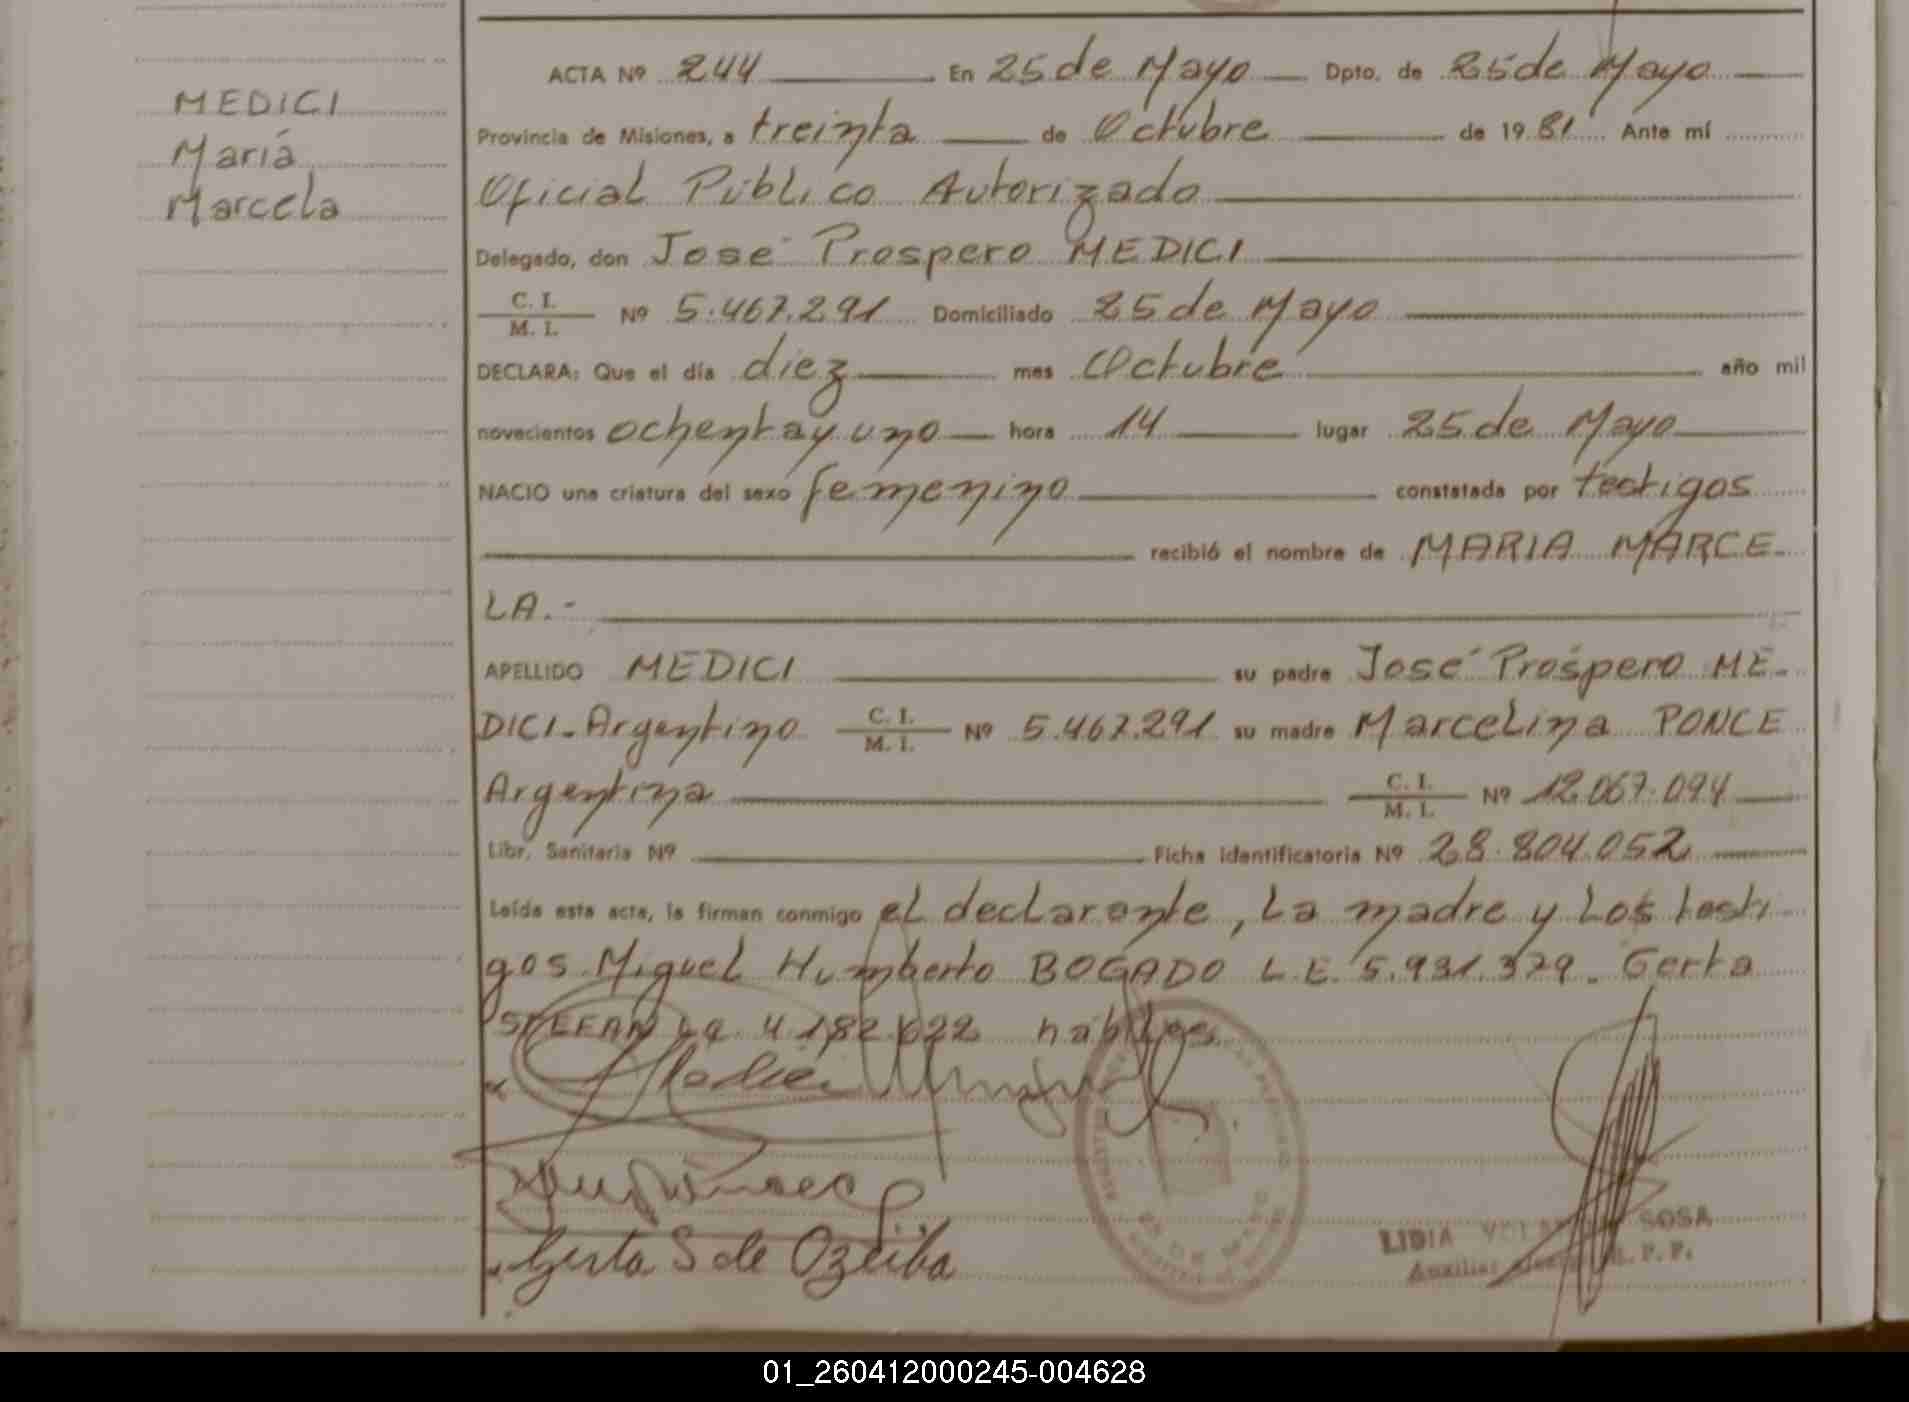 MEDICI
María
Marcela
ACTA Nº 244 En 25 de Mayo Dpto. de 25 de Mayo
Provincia de Misiones, a treinta de Octubre de 1981 Ante mí
Oficial Público Autorizado
Delegado, don José Prospero MEDICI
C. I.
M. I. Nº 5.467.291 Domiciliado 25 de Mayo
DECLARA: Que el día diez mes Octubre año mil
novecientos ochenta y uno hora 14 lugar 25 de Mayo
NACIO una criatura del sexo femenino constatada por testigos
recibió el nombre de MARIA MARCE-
LA.-
APELLIDO MEDICI su padre José Prospero ME-
DICI-Argentino C. I. M. I. Nº 5.467.291 su madre Marcelina PONCE
Argentina C. I. M. I. Nº 12.067.094
Libr. Sanitaria Nº Ficha identificatoria Nº 28.804.052
Leída esta acta, la firman conmigo el declarante, La madre y Los testi-
gos Miguel Humberto BOGADO L.E. 5.931.379. Gerta
STEFAN 4.182.622 habiles
Gerta S de Ozeiba
LIDIA SOSA
Auxiliar R. P. P.
01_260412000245-004628